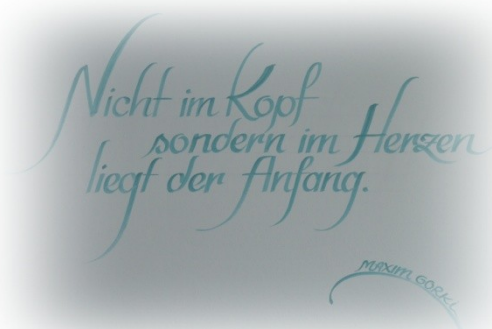 Nicht im Kopf
sondern im Herzen
liegt der Anfang.
MAXIM GORKI